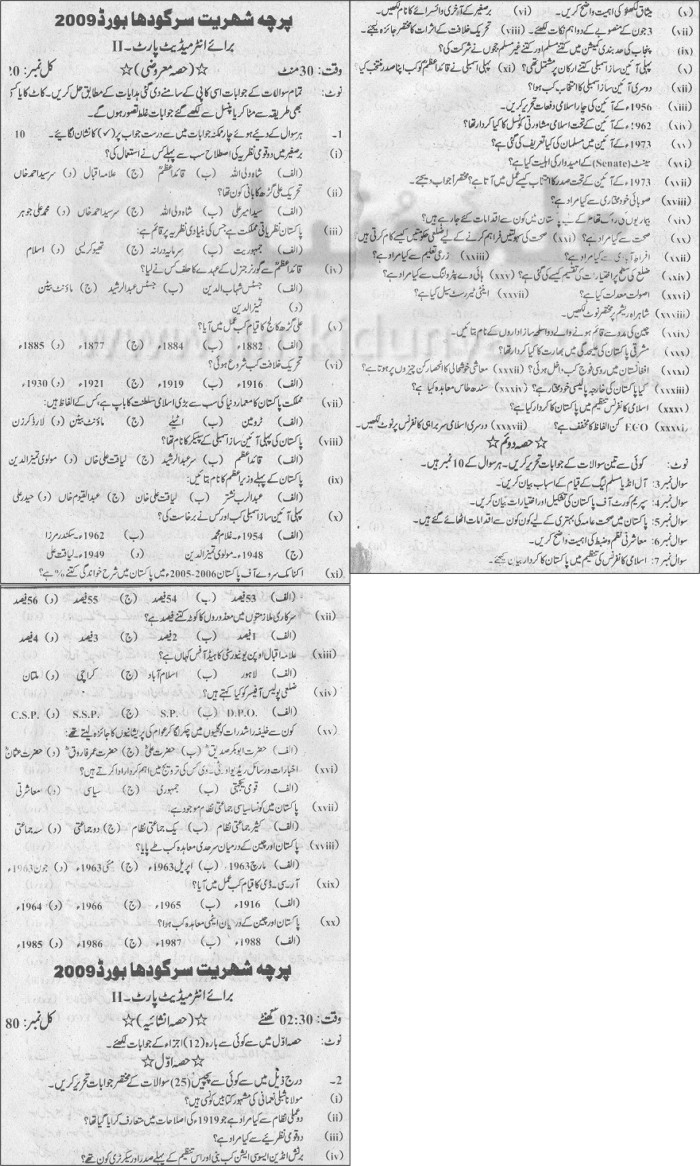 پرچہ شہریت سرگودھا بورڈ 2009
برائے انٹرمیڈیٹ پارٹ۔ II
وقت: 30 منٹ ☆(حصہ معروضی)☆ کل نمبر: 20
نوٹ: تمام سوالات کے جوابات اسی کاپی کے سامنے دی گئی ہدایات کے مطابق حل کریں۔ کاٹ کر یا کسی
بھی طریقہ سے مٹا کر یا پنسل سے لکھے گئے جوابات غلط تصور ہوں گے۔
1۔ ہر سوال کے دیئے ہوئے چار ممکنہ جوابات میں سے درست جواب پر (✓) کا نشان لگایئے۔ 10
(i) برصغیر میں دو قومی نظریہ کی اصطلاح سب سے پہلے کس نے استعمال کی؟
(الف) شاہ ولی اللہ (ب) قائداعظمؒ (ج) علامہ اقبال (د) سرسید احمد خاں
(ii) تحریک علی گڑھ کا بانی کون تھا؟
(الف) سید امیر علی (ب) شاہ ولی اللہ (ج) سرسید احمد خاں (د) محمد علی جوہر
(iii) پاکستان نظریاتی مملکت ہے جس کی بنیاد کی نظریہ پر قائم ہے:
(الف) جمہوریت (ب) سرمایہ دارانہ (ج) تھیوکریسی (د) اسلام
(iv) قائداعظمؒ سے گورنر جنرل کے عہدے کا حلف کس نے لیا؟
(الف) جسٹس شہاب الدین (ب) جسٹس عبدالرشید (ج) ماؤنٹ بیٹن
(د) تمیز الدین
(v) علی گڑھ کالج کا قیام کب عمل میں آیا؟
(الف) 1882ء (ب) 1884ء (ج) 1877ء (د) 1885ء
(vi) تحریک خلافت کب شروع ہوئی؟
(الف) 1916ء (ب) 1919ء (ج) 1921ء (د) 1930ء
(vii) مملکت پاکستان کا معمار دنیا کی سب سے بڑی اسلامی سلطنت کا باپ ہے، کس کے الفاظ ہیں:
(الف) ٹرومین (ب) اٹیلے (ج) ماؤنٹ بیٹن (د) لارڈ کرزن
(viii) پاکستان کی پہلی آئین ساز اسمبلی کے سپیکر کا نام تھا؟
(الف) قائداعظمؒ (ب) سر عبدالرشید (ج) لیاقت علی خاں (د) مولوی تمیز الدین
(ix) پاکستان کے پہلے وزیراعظم کا نام بتائیں:
(الف) عبدالرب نشتر (ب) لیاقت علی خان (ج) عبدالقیوم خاں (د) حیدر علی
(x) پہلی آئین ساز اسمبلی کب اور کس نے برخاست کی؟
(الف) 1954ء۔ غلام محمد (ب) 1962ء۔ سکندر مرزا
(ج) 1948ء۔ مولوی تمیز الدین (د) 1949ء۔ لیاقت علی
(xi) اکنامک سروے آف پاکستان 2006-2005ء میں پاکستان میں شرح خواندگی کتنے % ہے؟
(الف) 53 فیصد (ب) 54 فیصد (ج) 55 فیصد (د) 56 فیصد
(xii) سرکاری ملازمتوں میں معذوروں کا کوٹہ کتنے فیصد ہے؟
(الف) 1 فیصد (ب) 2 فیصد (ج) 3 فیصد (د) 4 فیصد
(xiii) علامہ اقبال اوپن یونیورسٹی کا ہیڈ آفس کہاں ہے؟
(الف) لاہور (ب) اسلام آباد (ج) کراچی (د) ملتان
(xiv) ضلعی پولیس آفیسر کو کیا کہتے ہیں؟
(الف) D.P.O. (ب) S.P. (ج) S.S.P. (د) C.S.P.
(xv) کون سے خلیفہ راشد رات کو گلیوں میں چکر لگا کر عوام کی پریشانیوں کا جائزہ لیتے تھے:
(الف) حضرت ابوبکر صدیقؓ (ب) حضرت علیؓ (ج) حضرت عمر فاروقؓ (د) حضرت عثمانؓ
(xvi) اخبارات و رسائل ریڈیو اور ٹی۔ وی کس کی ترویج میں اہم کردار ادا کرتے ہیں؟
(الف) قومی یکجہتی (ب) جمہوری (ج) سیاسی (د) معاشرتی
(xvii) پاکستان میں کونسا سیاسی جماعتی نظام موجود ہے:
(الف) کثیر جماعتی نظام (ب) یک جماعتی نظام (ج) دو جماعتی (د) سہ جماعتی
(xviii) پاکستان اور چین کے درمیان سرحدی معاہدہ کب طے پایا؟
(الف) مارچ 1963ء (ب) اپریل 1963ء (ج) مئی 1963ء (د) جون 1963ء
(xix) آر۔ سی۔ ڈی کا قیام کب عمل میں آیا؟
(الف) 1916ء (ب) 1965ء (ج) 1966ء (د) 1964ء
(xx) پاکستان اور چین کے درمیان ایٹمی معاہدہ کب ہوا؟
(الف) 1988ء (ب) 1987ء (ج) 1986ء (د) 1985ء
پرچہ شہریت سرگودھا بورڈ 2009
برائے انٹرمیڈیٹ پارٹ۔ II
وقت: 02:30 گھنٹے ☆(حصہ انشائیہ)☆ کل نمبر: 80
نوٹ: حصہ اول میں سے کوئی سے بارہ (12) اجزاء کے جوابات لکھئے۔
☆حصہ اوّل☆
2۔ درج ذیل میں سے کوئی سے پچیس (25) سوالات کے مختصر جوابات تحریر کریں۔
(i) مولانا شبلی نعمانی کی مشہور کتابیں کونسی ہیں؟
(ii) دو عملی نظام سے کیا مراد ہے جو 1919ء کی اصلاحات میں متعارف کرایا گیا تھا؟
(iii) دو قومی نظریئے سے کیا مراد ہے؟
(iv) برٹش انڈین ایسوسی ایشن کب بنی اور اس تنظیم کے پہلے صدر اور سیکرٹری کون تھے؟
(v) میثاق لکھنؤ کی اہمیت واضح کریں۔ (vi) برصغیر کے آخری وائسرائے کا نام لکھیں۔
(vii) 3 جون کے منصوبے کے دو اہم نکات لکھئے۔ (viii) تحریک خلافت کے اثرات کا مختصر جائزہ لیجئے۔
(ix) پنجاب کی حد بندی کمیشن میں کتنے مسلم اور کتنے غیر مسلم ججوں نے شرکت کی؟
(x) پہلی آئین ساز اسمبلی کتنے ارکان پر مشتمل تھی؟ (xi) پہلی آئین ساز اسمبلی نے قائداعظمؒ کو کب اپنا صدر منتخب کیا؟
(xii) دوسری آئین ساز اسمبلی کا انتخاب کب ہوا؟
(xiii) 1956ء کے آئین کی چار اسلامی دفعات تحریر کریں۔
(xiv) 1962ء کے آئین کے تحت اسلامی مشاورتی کونسل کا کیا کردار تھا؟
(xv) 1973ء کے آئین میں مسلمان کی کیا تعریف کی گئی ہے؟
(xvi) سینٹ (Senate) کے امیدوار کی اہلیت کیا ہے؟
(xvii) 1973ء کے آئین کے تحت صدر کا انتخاب کیسے عمل میں آتا ہے؟ مختصر جواب دیجئے۔
(xviii) صوبائی خودمختاری سے کیا مراد ہے؟
(xix) بیماریوں کی روک تھام کے لیے پاکستان میں کون سے اقدامات کئے جا رہے ہیں؟
(xx) صحت سے کیا مراد ہے؟ (xxi) صحت کی سہولتیں فراہم کرنے کے لیے ضلعی حکومتیں کیسے کام کرتی ہیں؟
(xxii) افراط آبادی سے کیا مراد ہے؟ (xxiii) زرعی تعلیم سے کیا مراد ہے؟
(xxiv) ضلع کی سطح پر اختیارات کی تقسیم کیسے کی گئی ہے؟ (xxv) ہائی وے پٹرولنگ سے کیا مراد ہے؟
(xxvi) اصولِ معدلت کیا ہے؟ (xxvii) اینٹی ٹیررسٹ سیل کیا ہے؟
(xxviii) شاہراہ ریشم پر مختصر نوٹ لکھیں۔
(xxix) چین کی مدد سے قائم ہونے والے دو اسلحہ ساز اداروں کے نام بتائیں۔
(xxx) مشرقی پاکستان کی علیحدگی میں بھارت کا کیا کردار تھا؟
(xxxi) افغانستان میں روسی فوج کب داخل ہوئی؟ (xxxii) معاشی خوشحالی کا انحصار کن چیزوں پر ہوتا ہے؟
(xxxiii) کیا پاکستان کی خارجہ پالیسی خودمختار ہے؟ (xxxiv) سندھ طاس معاہدہ کیا ہے؟
(xxxv) اسلامی کانفرنس تنظیم میں پاکستان کا کردار کیا ہے؟
(xxxvi) ECO کن الفاظ کا مخفف ہے؟ (xxxvii) دوسری اسلامی سربراہی کانفرنس پر نوٹ لکھیں۔
☆حصہ دوئم☆
نوٹ: کوئی سے تین سوالات کے جوابات تحریر کریں۔ ہر سوال کے 10 نمبر ہیں۔
سوال نمبر 3: آل انڈیا مسلم لیگ کے قیام کے اسباب بیان کریں۔
سوال نمبر 4: سپریم کورٹ آف پاکستان کی تشکیل اور اختیارات بیان کریں۔
سوال نمبر 5: پاکستان میں صحت عامہ کی بہتری کے لیے کون کون سے اقدامات اٹھائے گئے ہیں۔
سوال نمبر 6: معاشرتی نظم و ضبط کی اہمیت واضح کریں۔
سوال نمبر 7: اسلامی کانفرنس کی تنظیم میں پاکستان کا کردار بیان کیجئے۔